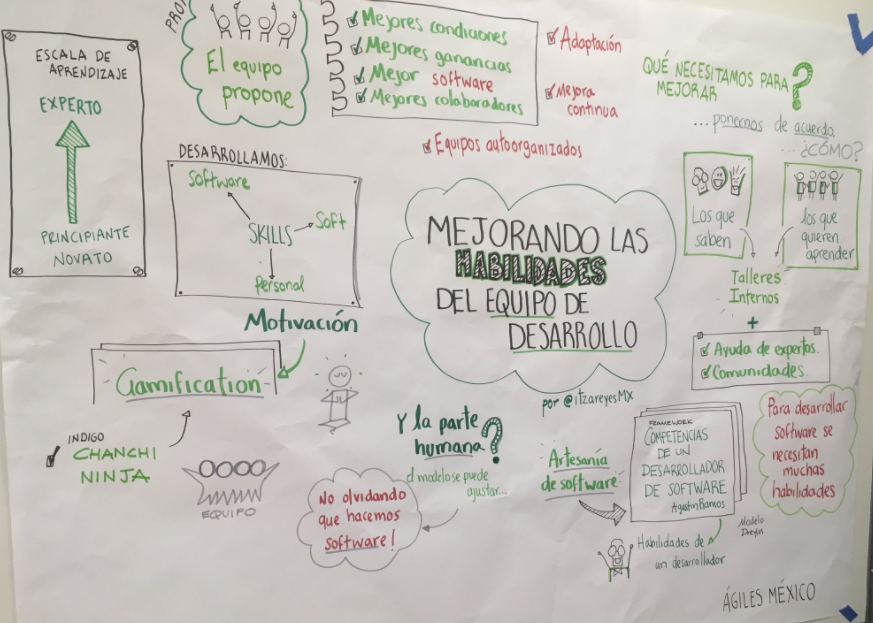 ESCALA DE
APRENDIZAJE
EXPERTO
PRINCIPIANTE
NOVATO
El equipo
propone
Mejores condiciones
Mejores ganancias
Mejor software
Mejores colaboradores
Adaptación
Mejora
continua
Equipos autoorganizados
QUÉ NECESITAMOS PARA
MEJORAR ?
...ponernos de acuerdo
...¿CÓMO?
Los que
saben
los que
quieren
aprender
Talleres
Internos
+
Ayuda de expertos.
Comunidades.
DESARROLLAMOS:
Software
SKILLS
Soft
Personal
MEJORANDO LAS
HABILIDADES
DEL EQUIPO DE
DESARROLLO
por @itzareyesMX
Motivación
Gamification
INDIGO
CHANCHI
NINJA
EQUIPO
Y la parte
humana ?
el modelo se puede
ajustar...
No olvidando
que hacemos
software!
Artesanía
de software
FRAMEWORK
COMPETENCIAS
DE UN
DESARROLLADOR
DE SOFTWARE
Agustín Ramos
Modelo
Dreyfus
Habilidades de
un desarrollador
Para desarrollar
software se
necesitan
muchas
habilidades
ÁGILES MÉXICO